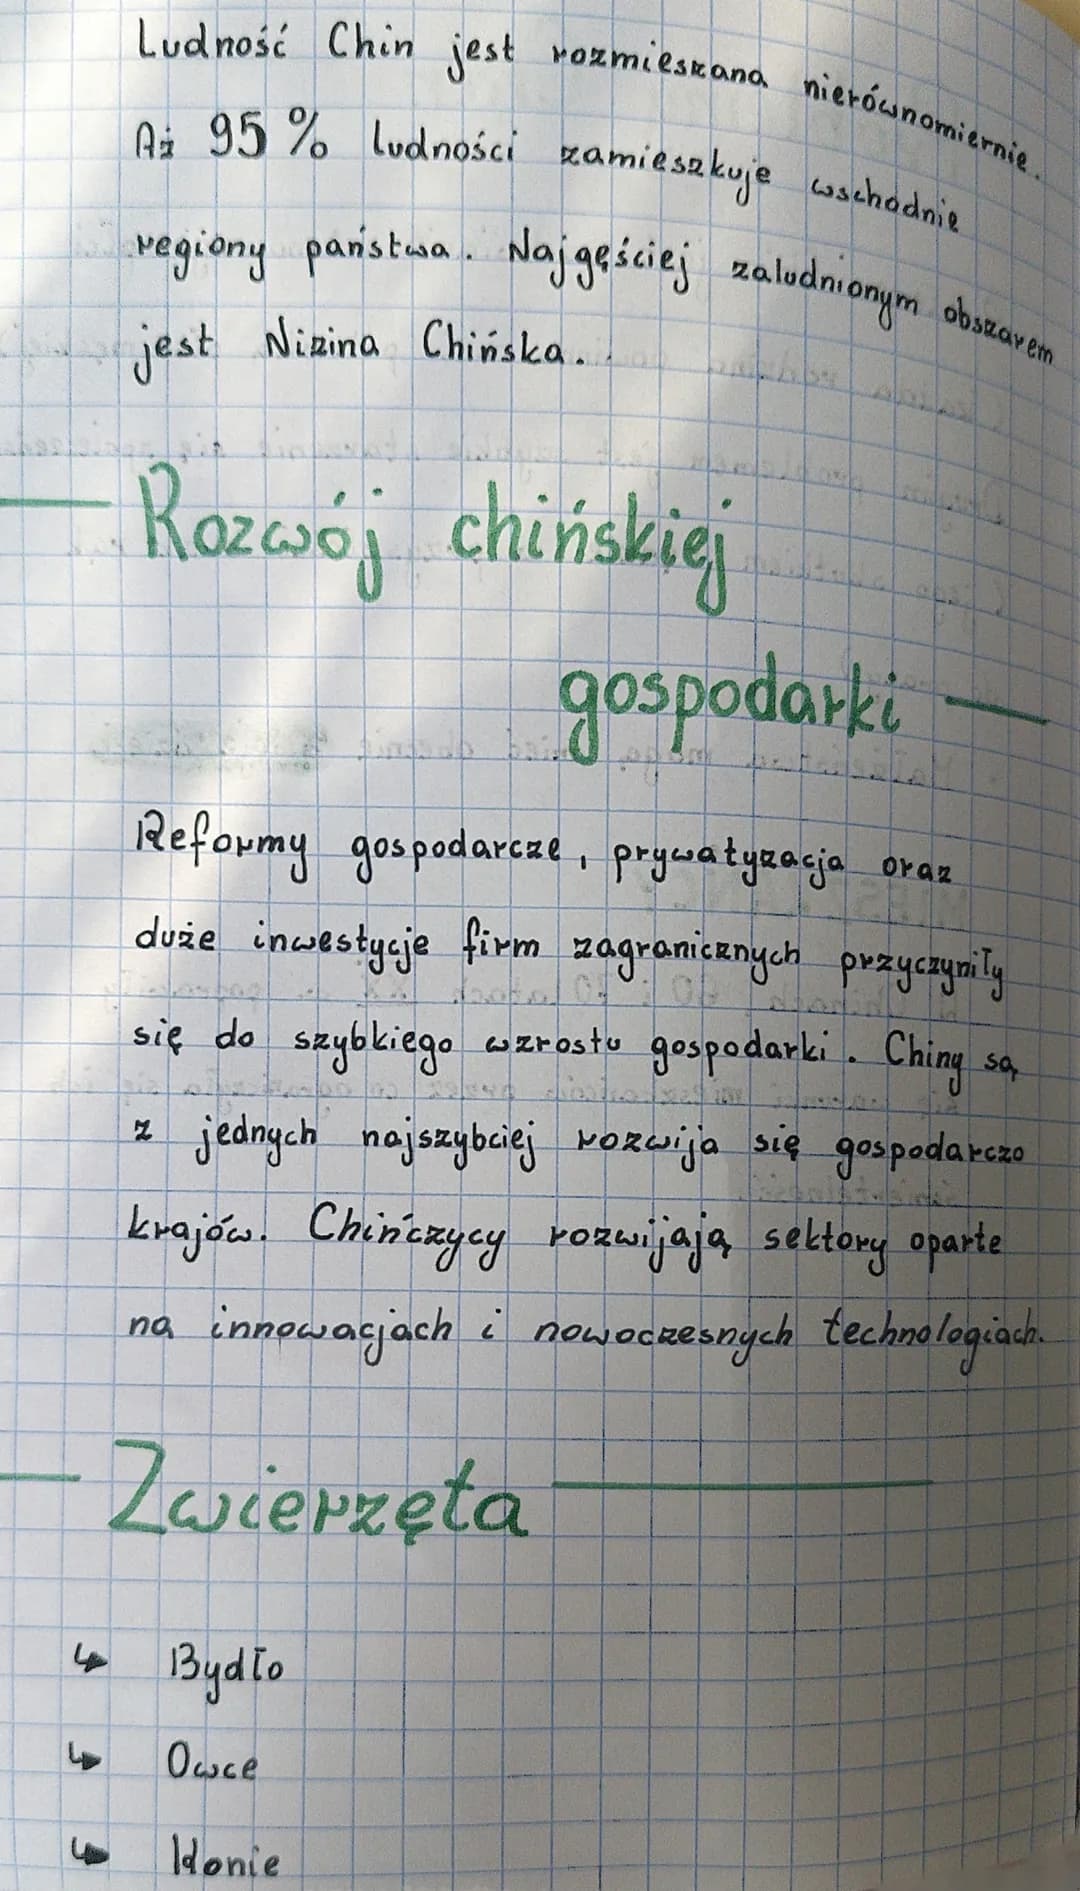 Ludność Chin jest rozmieszana nierównomiernie.
Aż 95% ludności zamieszkuje wschodnie
regiony państwa. Najgęściej zaludnionym obszarem
jest Nizina Chińska.
Rozwój chińskiej
gospodarki
Reformy gospodarcze, prywatyzacja oraz
duże inwestycje firm zagranicznych przyczyniły
się do szybkiego wzrostu gospodarki. Chiny są
z jednych najszybciej rozwija się gospodarczo
krajów. Chińczycy rozwijają sektory oparte
na innowacjach i nowoczesnych technologiach.
Zwierzęta
↳ Bydło
↳ Owce
↳ Konie